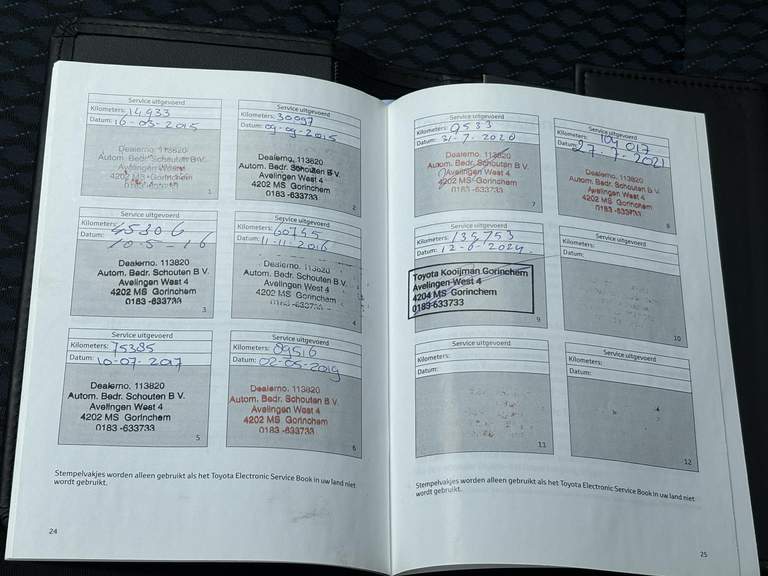 Service uitgevoerd
Kilometers: 14933
Datum: 16-03-2015
Dealerno. 113820
Autom. Bedr. Schouten B.V.
Avelingen West 4
4202 MS Gorinchem
1
Service uitgevoerd
Kilometers: 30097
Datum: 09-09-2015
Dealerno. 113820
Autom. Bedr. Schouten B V.
Avelingen West 4
4202 MS Gorinchem
0183 -633733
2
Service uitgevoerd
Kilometers: 45306
Datum: 10-5-16
Dealerno. 113820
Autom. Bedr. Schouten B V.
Avelingen West 4
4202 MS Gorinchem
0183 -633733
3
Service uitgevoerd
Kilometers: 60745
Datum: 11-11-2016
Dealerno. 113820
Autom. Bedr. Schouten B.V.
Avelingen West 4
4202 MS Gorinchem
0183 -633733
4
Service uitgevoerd
Kilometers: 75385
Datum: 10-07-2017
Dealerno. 113820
Autom. Bedr. Schouten B V.
Avelingen West 4
4202 MS Gorinchem
0183 -633733
5
Service uitgevoerd
Kilometers: 89516
Datum: 02-05-2019
Dealerno. 113820
Autom. Bedr. Schouten B V.
Avelingen West 4
4202 MS Gorinchem
0183 -633733
6
Stempelvakjes worden alleen gebruikt als het Toyota Electronic Service Book in uw land niet
wordt gebruikt.
24
Service uitgevoerd
Kilometers:
Datum: 31-7-2020
Dealerno. 113820
Autom. Bedr. Schouten B.V.
Avelingen West 4
4202 MS Gorinchem
0183 -633733
7
Service uitgevoerd
Kilometers: 109 017
Datum: 27-7-2021
Dealerno. 113820
Autom. Bedr. Schouten B.V.
Avelingen West 4
4202 MS Gorinchem
0183 -633733
8
Service uitgevoerd
Kilometers: 134753
Datum: 12-6-2024
Toyota Kooijman Gorinchem
Avelingen West 4
4204 MS Gorinchem
0183-633733
9
Service uitgevoerd
Kilometers:
Datum:
10
Service uitgevoerd
Kilometers:
Datum:
11
Service uitgevoerd
Kilometers:
Datum:
12
Stempelvakjes worden alleen gebruikt als het Toyota Electronic Service Book in uw land niet
wordt gebruikt.
25